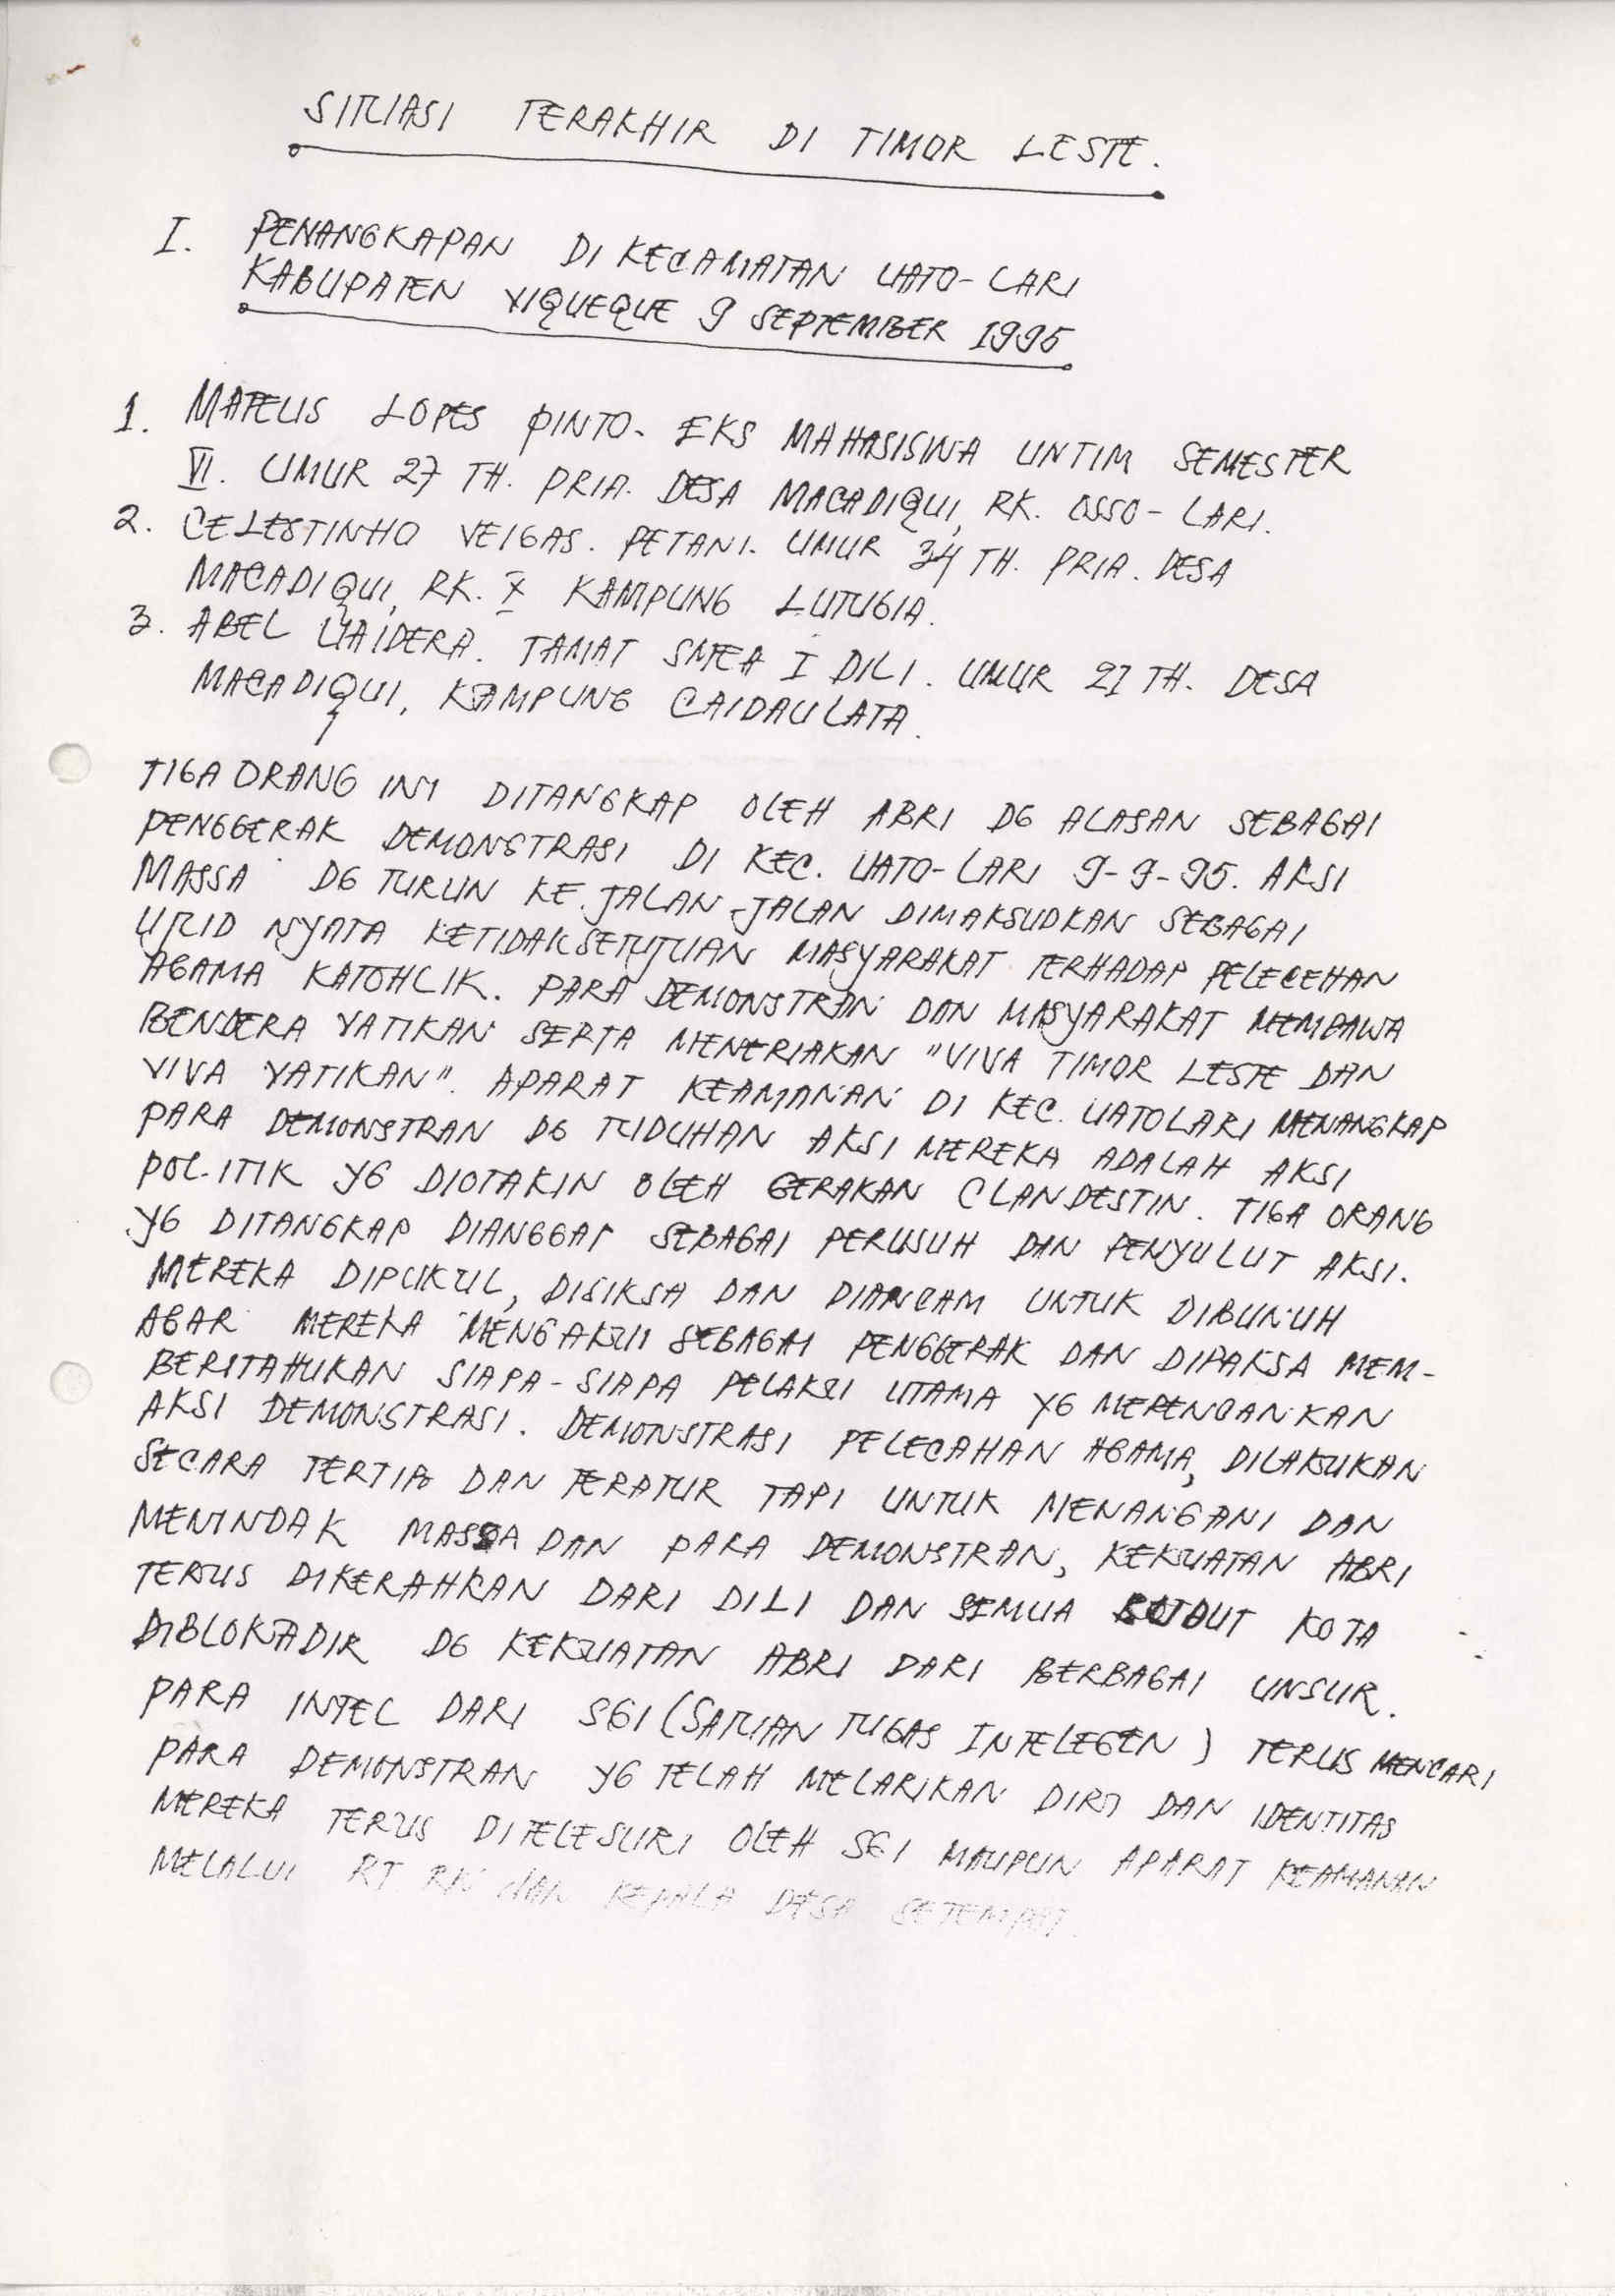 SITUASI TERAKHIR DI TIMOR LESTE.
I. PENANGKAPAN DI KECAMATAN UATO-LARI
KABUPATEN VIQUEQUE 9 SEPTEMBER 1995
1. MATEUS LOPES PINTO. EKS MAHASISWA UNTIM SEMESTER
VI. UMUR 27 TH. PRIA. DESA MACADIQUI, RK. OSSO-LARI.
2. CELESTINHO VEIGAS. PETANI. UMUR 34 TH. PRIA. DESA
MACADIQUI, RK. KAMPUNG LUTUGIA.
3. ABEL UAIDERA. TAMAT SMEA I DILI. UMUR 21 TH. DESA
MACADIQUI, KAMPUNG CAIDAULATA.
TIGA ORANG INI DITANGKAP OLEH ABRI DG ALASAN SEBAGAI
PENGGERAK DEMONSTRASI DI KEC. UATO-LARI 9-9-95. AKSI
MASSA DG TURUN KE JALAN-JALAN DIMAKSUDKAN SEBAGAI
UJUD NYATA KETIDAKSETUJUAN MASYARAKAT TERHADAP PELECEHAN
AGAMA KATOHLIK. PARA DEMONSTRAN DAN MASYARAKAT MEMBAWA
BENDERA VATIKAN SERTA MENERIAKAN "VIVA TIMOR LESTE DAN
VIVA VATIKAN". APARAT KEAMANAN DI KEC. UATOLARI MENANGKAP
PARA DEMONSTRAN DG TUDUHAN AKSI MEREKA ADALAH AKSI
POLITIK YG DIOTAKIN OLEH GERAKAN CLANDESTIN. TIGA ORANG
YG DITANGKAP DIANGGAP SEBAGAI PERUSUH DAN PENYULUT AKSI.
MEREKA DIPUKUL, DISIKSA DAN DIANCAM UNTUK DIBUNUH
AGAR MEREKA MENGAKUI SEBAGAI PENGGERAK DAN DIPAKSA MEM-
BERITAHUKAN SIAPA-SIAPA PELAKU UTAMA YG MERENCANKAN
AKSI DEMONSTRASI. DEMONSTRASI PELECAHAN AGAMA, DILAKUKAN
SECARA TERTIB DAN TERATUR TAPI UNTUK MENANGANI DAN
MENINDAK MASSA DAN PARA DEMONSTRAN, KEKUATAN ABRI
TERUS DIKERAHKAN DARI DILI DAN SEMUA SUDUT KOTA
DIBLOKADIR DG KEKUATAN ABRI DARI BERBAGAI UNSUR.
PARA INTEL DARI SGI (SATUAN TUGAS INTELEGEN) TERUS MENCARI
PARA DEMONSTRAN YG TELAH MELARIKAN DIRI DAN IDENTITAS
MEREKA TERUS DITELESURI OLEH SGI MAUPUN APARAT KEAMANAN
MELALUI RT RK DAN KEPALA DESA SETEMPAT.